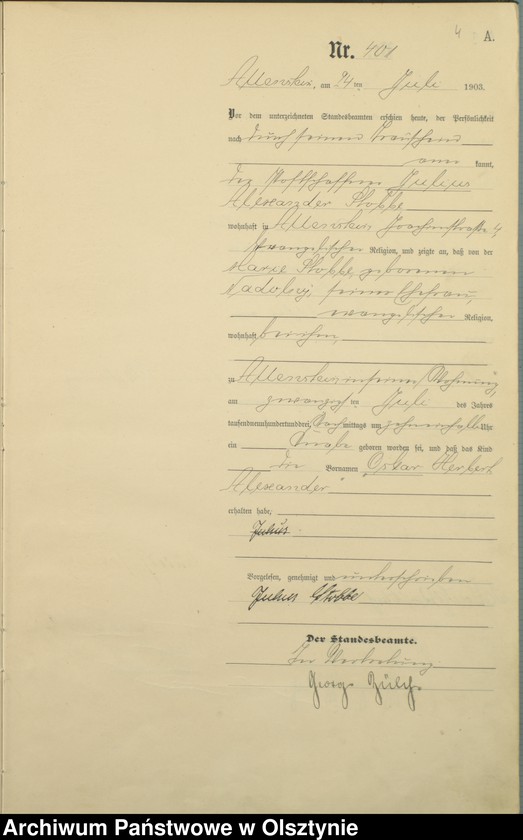 4 A.
Nr. 401
Allenstein, am 24 ten Juli 1903.
Vor dem unterzeichneten Standesbeamten erschien heute, der Persönlichkeit
nach durch seinen Trauschein
aner kannt,
der Postschaffner Julius
Alexander Stobbe
wohnhaft in Allenstein, Joachimstraße 4,
evangelischer Religion, und zeigte an, daß von der
Marie Stobbe, geborenen
Nadolny, seiner Ehefrau,
evangelischer Religion,
wohnhaft bei ihm,
zu Allenstein in seiner Wohnung,
am zwanzigsten Juli des Jahres
tausendneunhundertunddrei, Nachmittags um zehneinhalb Uhr
ein Knabe geboren worden sei, und daß das Kind
die Vornamen „Oskar Herbert
Alexander"
erhalten habe,
Julius
Vorgelesen, genehmigt und unterschrieben
Julius Stobbe
Der Standesbeamte.
In Vertretung
Georg
Archiwum Państwowe w Olsztynie